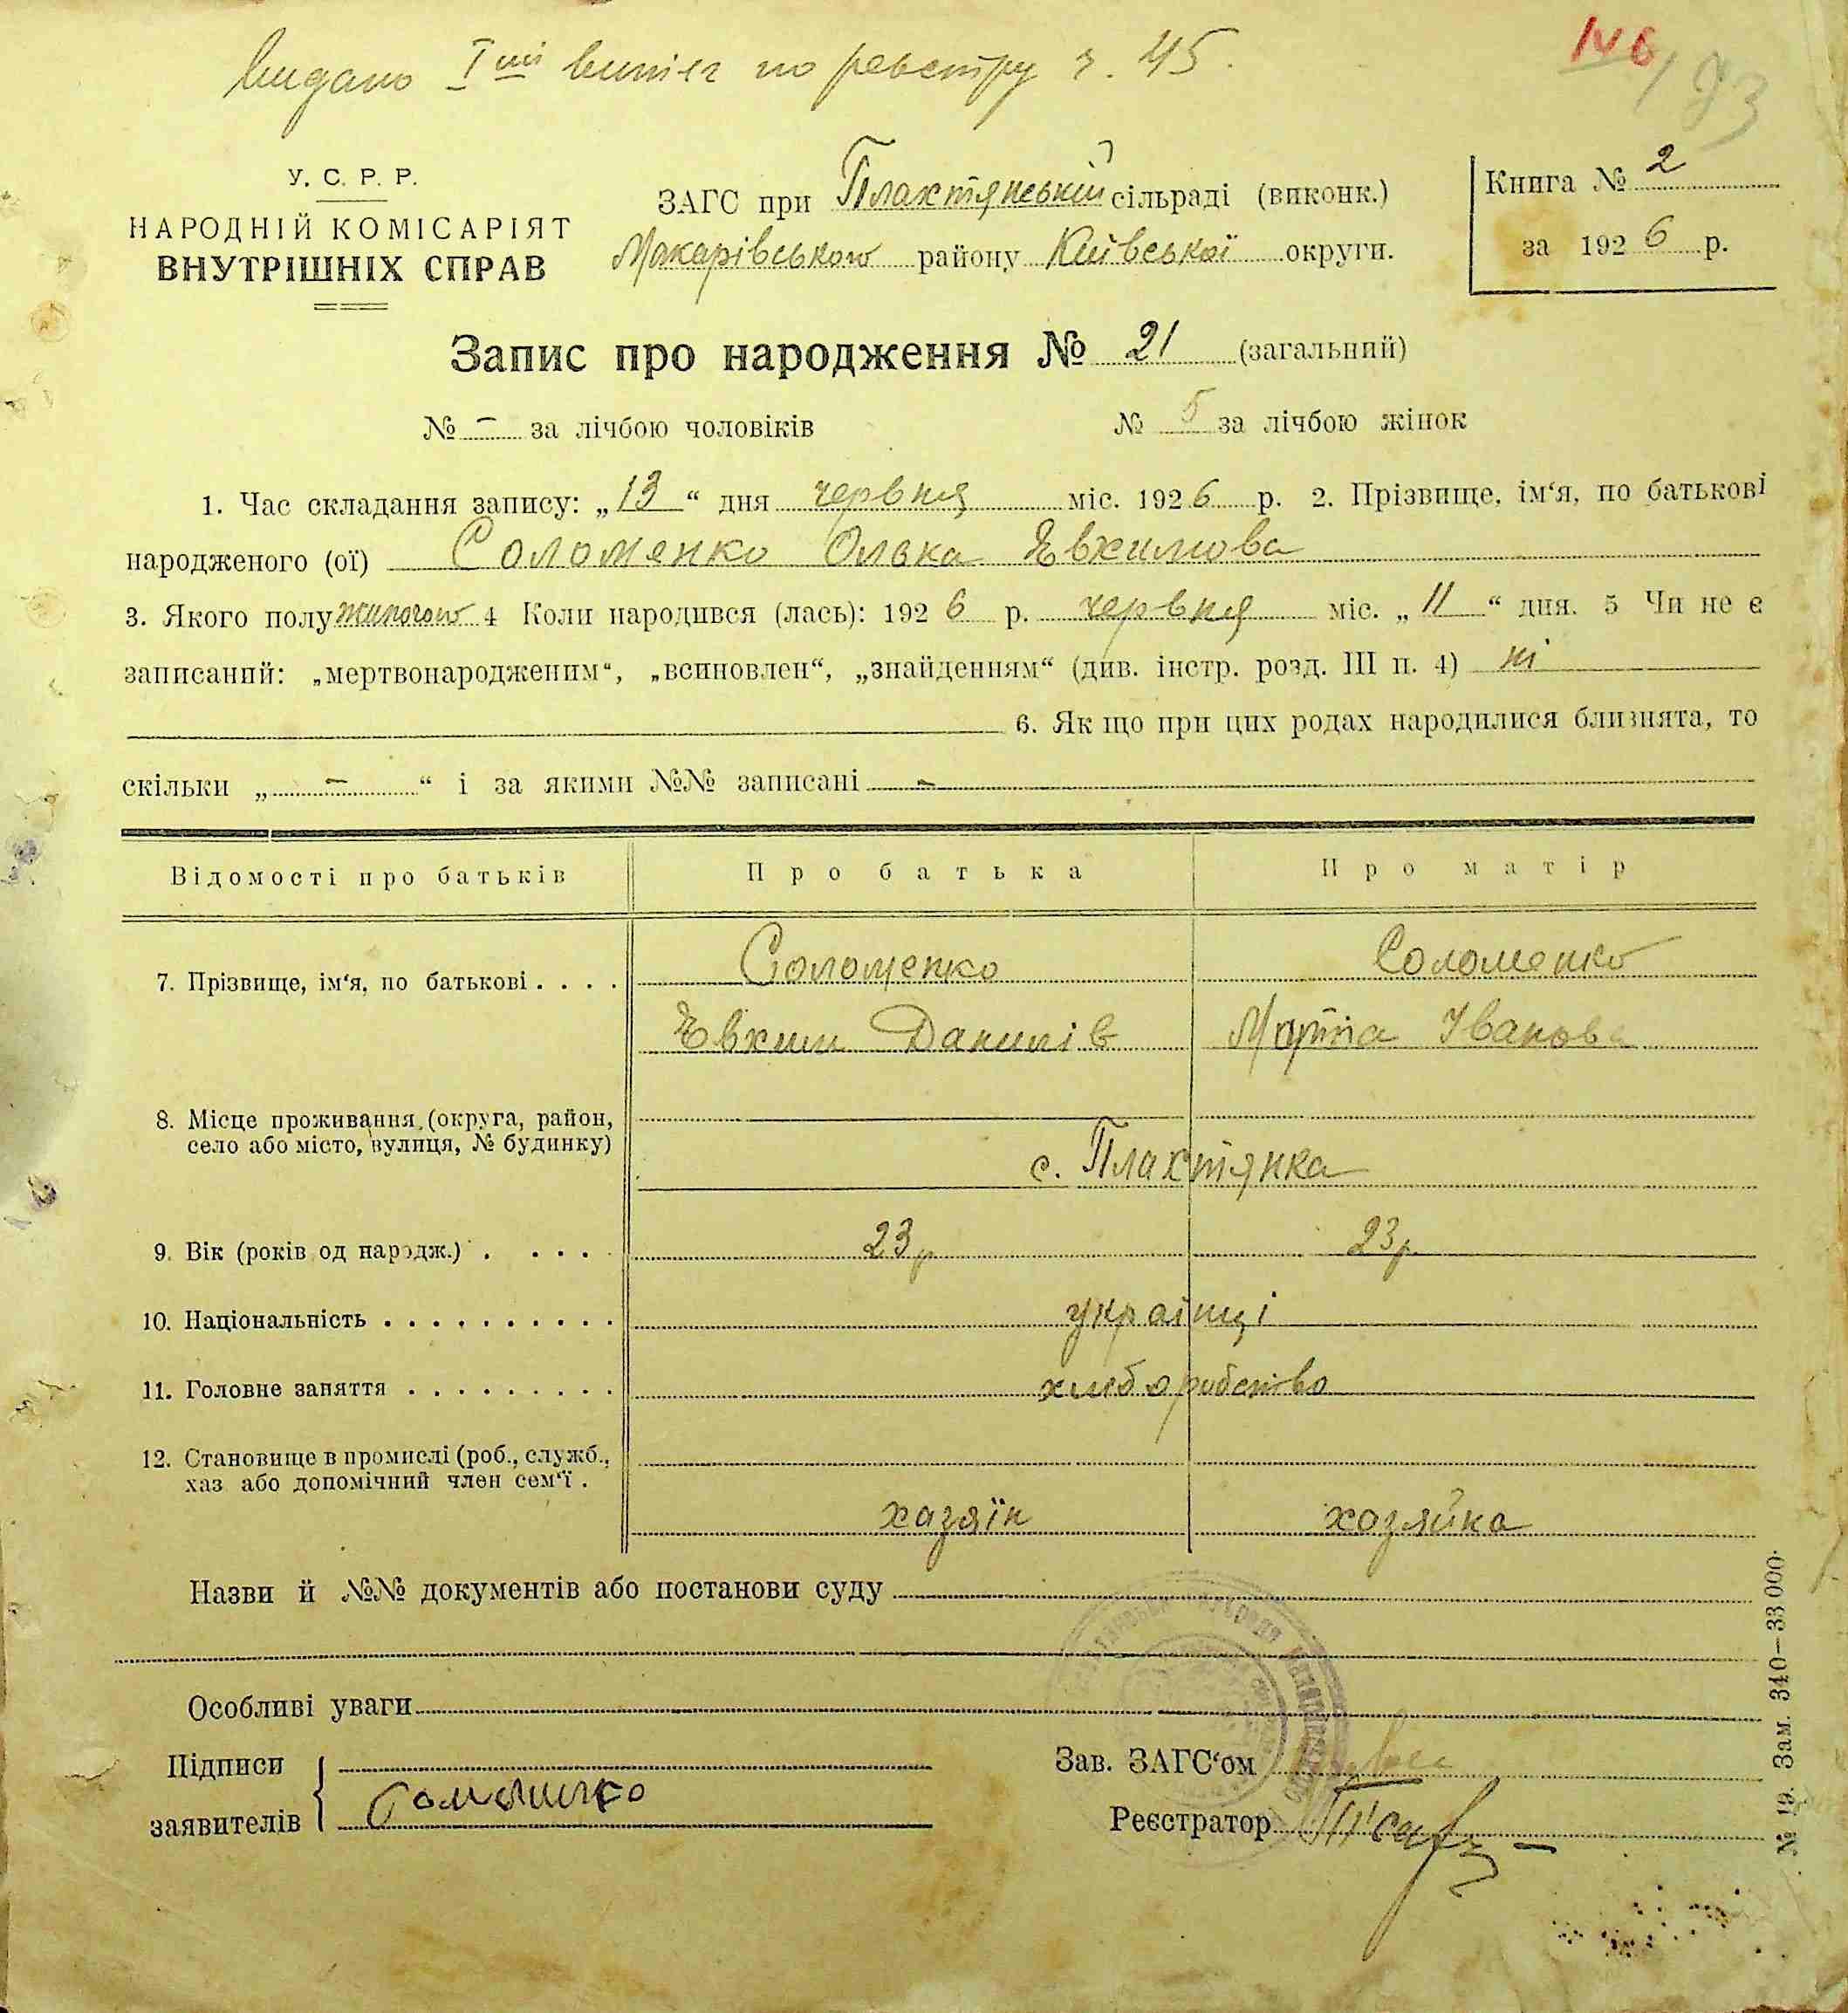 видано Iший витяг по реєстру з. 45.
146 / 93
У. С. Р. Р.
НАРОДНІЙ КОМІСАРІЯТ
ВНУТРІШНІХ СПРАВ
ЗАГС при Плахтянській сільраді (виконк.)
Макарівського району Київської округи.
Книга № 2
за 1926 р.
Запис про народження № 21 (загальний)
№ – за лічбою чоловіків № 5 за лічбою жінок
1. Час складання запису: „13“ дня червня міс. 1926 р. 2. Прізвище, ім‘я, по батькові
народженого (ої) Соломенко Олька Евхимова
3. Якого полу жиночого 4 Коли народився (лась): 1926 р. червня міс. „11“ дня. 5 Чи не є
записаний: „мертвонародженим“, „всиновлен“, „знайденням“ (див. інстр. розд. III п. 4) ні
6. Як що при цих родах народилися близнята, то
скільки „ – “ і за якими №№ записані –
Відомості про батьків Про батька Про матір
7. Прізвище, ім‘я, по батькові . . . . Соломенко Соломенко
Евхим Данилів Мотта Іванова
8. Місце проживання (округа, район,
село або місто, вулиця, № будинку)
с. Плахтянка
9. Вік (років од народж.) . . . . 23р 23р.
10. Національність . . . . . . . . . . українці
11. Головне заняття . . . . . . . . . хліборобство
12. Становище в промислі (роб., служб.,
хаз або допомічний член сем‘ї .
хазяїн хозяйка
Назви й №№ документів або постанови суду
Особливі уваги
Підписи
заявителів Соломенко
Зав. ЗАГС‘ом
Реєстратор
№ 19. Зам. 340—33 000.